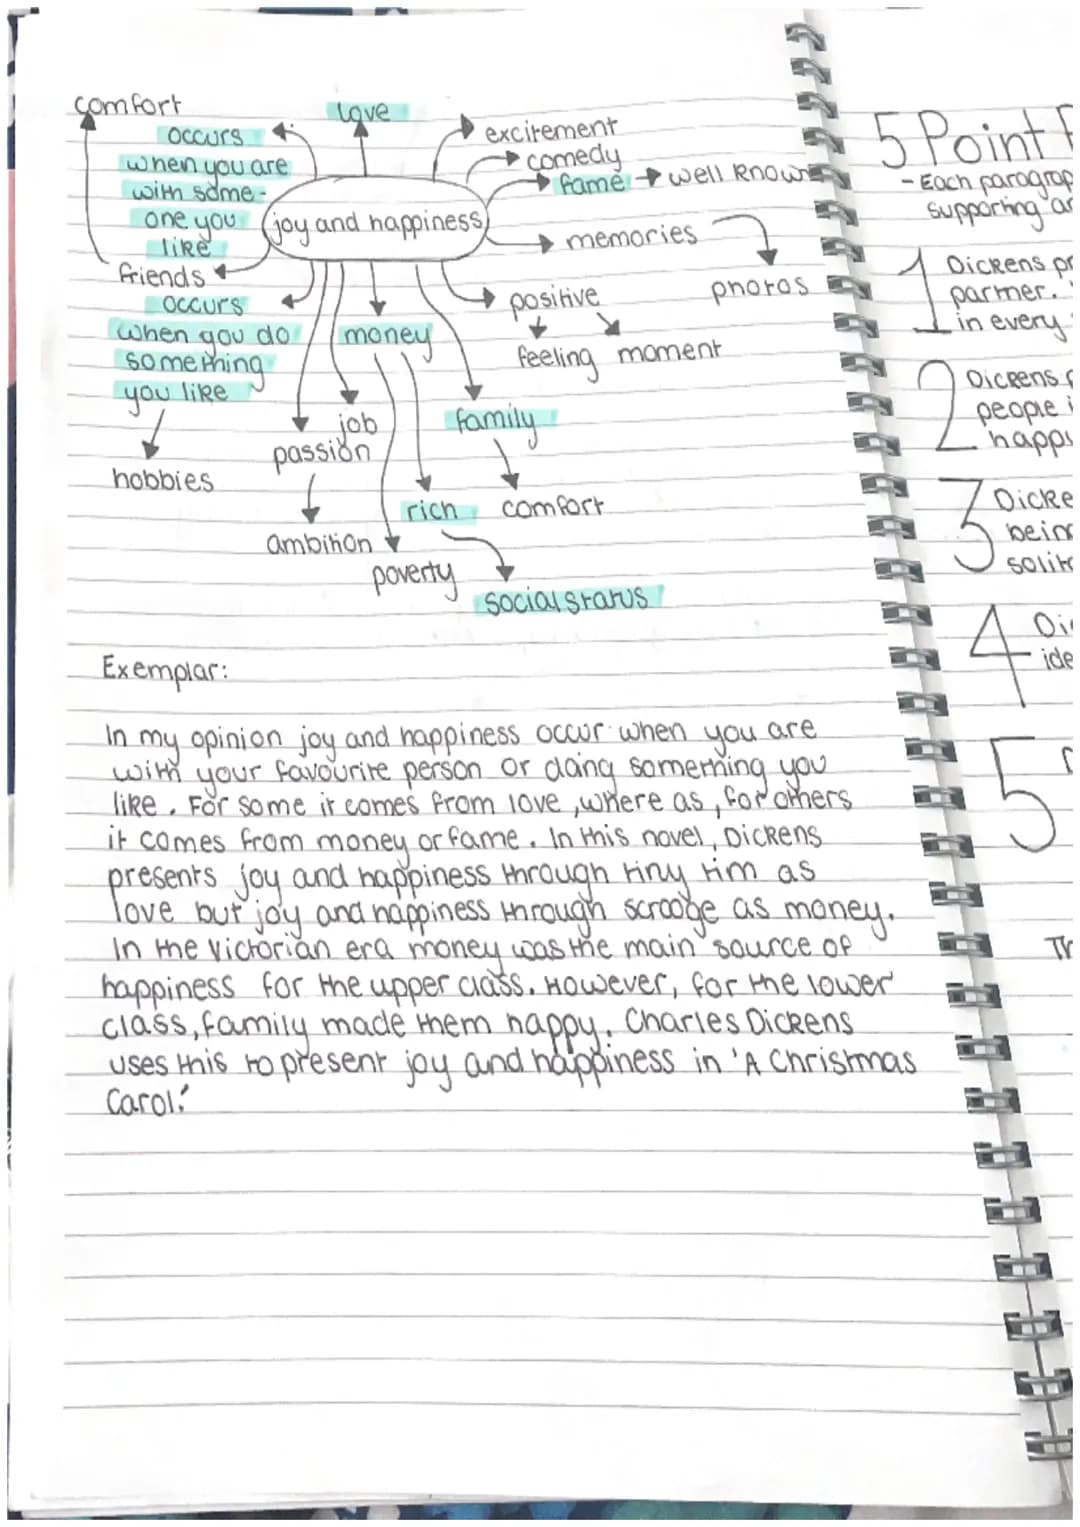 comfort
love
occurs
when you are
with some-
one you
like
excitement
comedy
fame → well known
joy and happiness
memories
photos
friends
occurs
when you do
something
you like
hobbies
money
positive
feeling moment
job
passion
ambition
family
comfort
rich
poverty
social status
Exemplar:
In my opinion joy and happiness occur when you are
with your favourite person or doing something you
like. For some it comes from love, where as, for others
it comes from money or fame. In this novel, Dickens
presents joy and happiness through tiny tim as
love but joy and happiness through scrooge as money.
In the Victorian era money was the main source of
happiness for the upper class. However, for the lower
class, family made them happy. Charles Dickens
uses this to present joy and happiness in 'A Christmas
Carol.'
5 Point
- Each paragrap
supporting
1 Dickens
partner.
in every
2 Dickens
people
happi
3 Dicke
bein
solit
4 Di
ide
5
Th